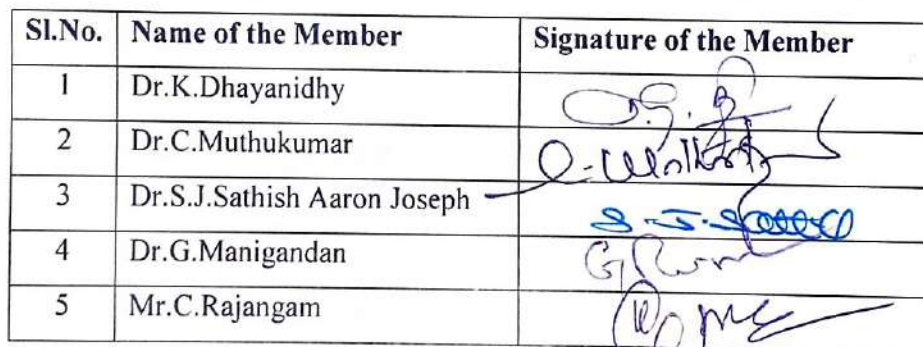 Sl.No. Name of the Member Signature of the Member
1 Dr.K.Dhayanidhy
2 Dr.C.Muthukumar
3 Dr.S.J.Sathish Aaron Joseph S.J.Sathish
4 Dr.G.Manigandan
5 Mr.C.Rajangam